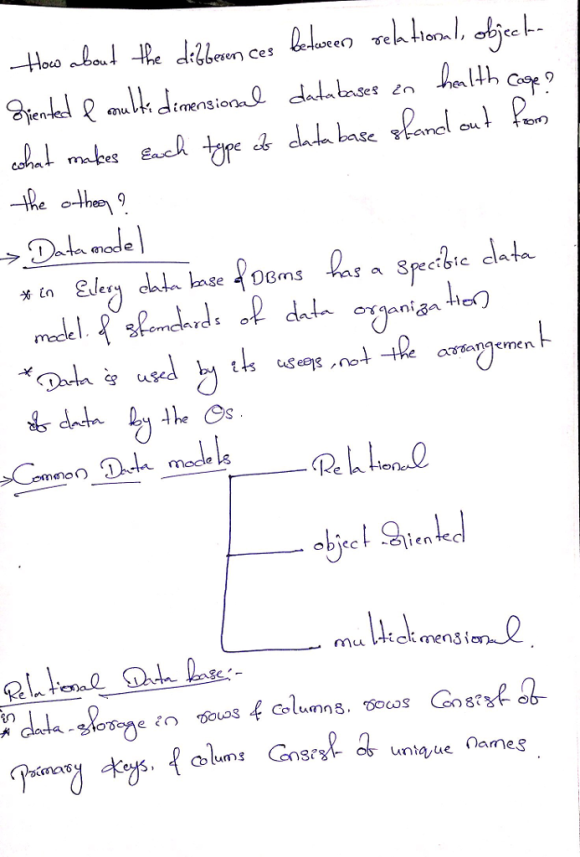 How about the differences between relational, object-
Oriented & multidimensional databases in health care?
what makes each type of database stand out from
the other?
→ Data model
* in Every data base & DBMS has a specific data
model. & standards of data organization
* Data is used by its users, not the arrangement
of data by the OS.
→ Common Data models
Relational
object Oriented
multidimensional.
Relational Data base:-
in
* data-storage in rows & columns. rows Consist of
primary keys. & colums Consist of unique names.